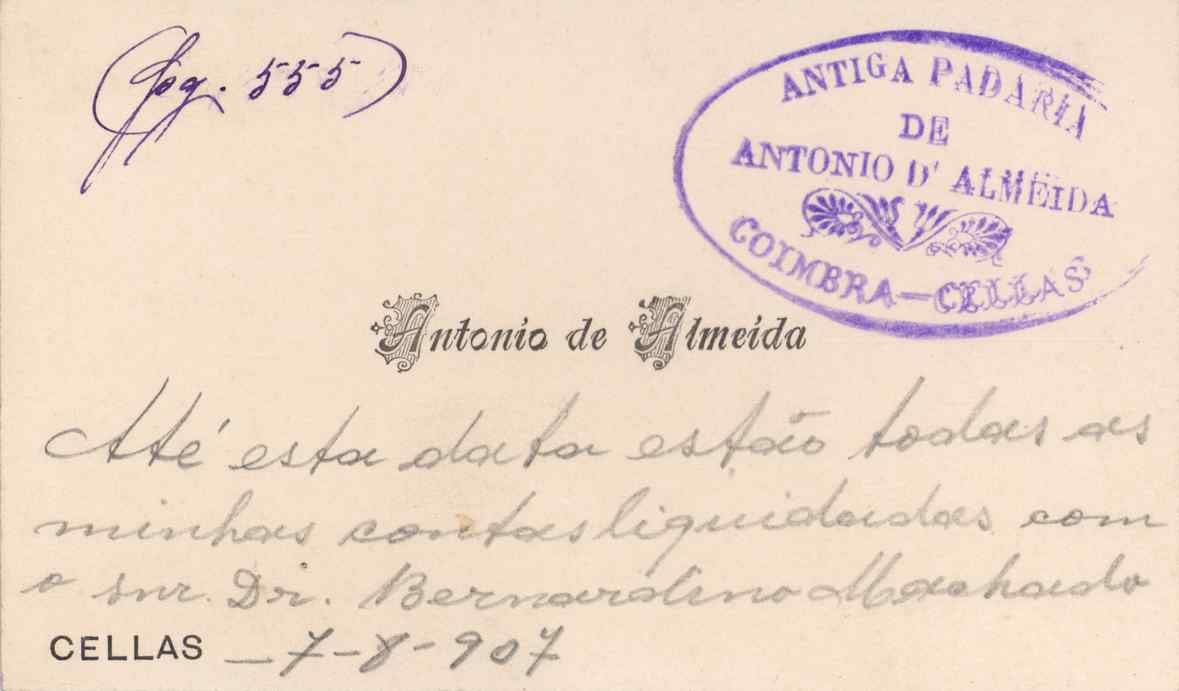 (Pg. 555)
ANTIGA PADARIA
DE
ANTONIO D' ALMEIDA
COIMBRA—CELLAS
Antonio de Almeida
Até esta data estão todas as
minhas contas liquidadas com
o snr. Dr. Bernardino Machado
CELLAS —7-8-907